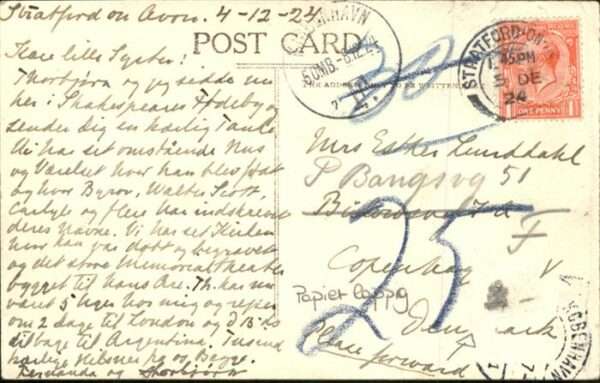 Stratford on Avon. 4-12-24
POST CARD
Kære lille Syster!
Thorbjørn og jeg sidde nu
her i Shakespeares Fødeby og
sender dig en kærlig Tanke
Vi har set omstående Hus
og Værelset hvor han blev født
og hvor Byron, Walter Scott,
Carlyle og flere har indskrevet
deres Navne. Vi har set Kirken
hvor han var døbt og begravet
og det store Memorialtheater
bygget til hans Ære. Th. har nu
været 5 Uger hos mig og rejser
om 2 Dage til London og d.
tilbage til Argentina. Tusend
kærlige Hilsner fra os Begge.
Fernanda og Thorbjørn
KØBENHAVN
5.OMB.-6.12.24
STRATFORD-ON-
1.45PM
5 DE
24
ONE PENNY
30
Mrs Esther Lunddahl
P Bangsvg 51
F
25
Copenhag
V
Papierlappig
Denmark
Please forward
KØBENHAVN